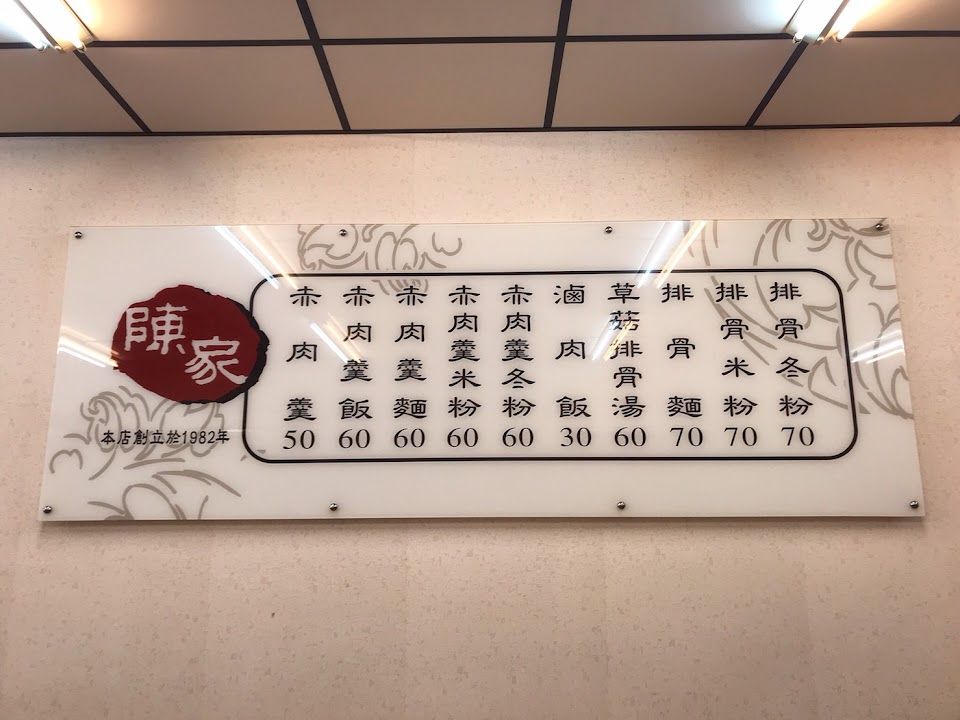 陳家
本店創立於1982年
赤肉羹 50
赤肉羹飯 60
赤肉羹麵 60
赤肉羹米粉 60
赤肉羹冬粉 60
滷肉飯 30
草菇排骨湯 60
排骨麵 70
排骨米粉 70
排骨冬粉 70